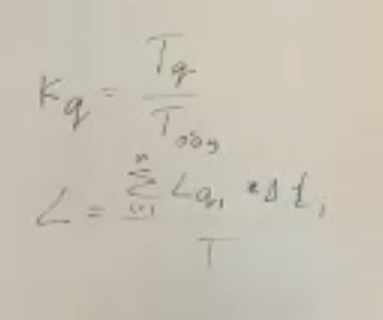 K_q = T_q / T_общ
L = ∑_{i=1}^{n} L_{q_i} * Δt_i / T